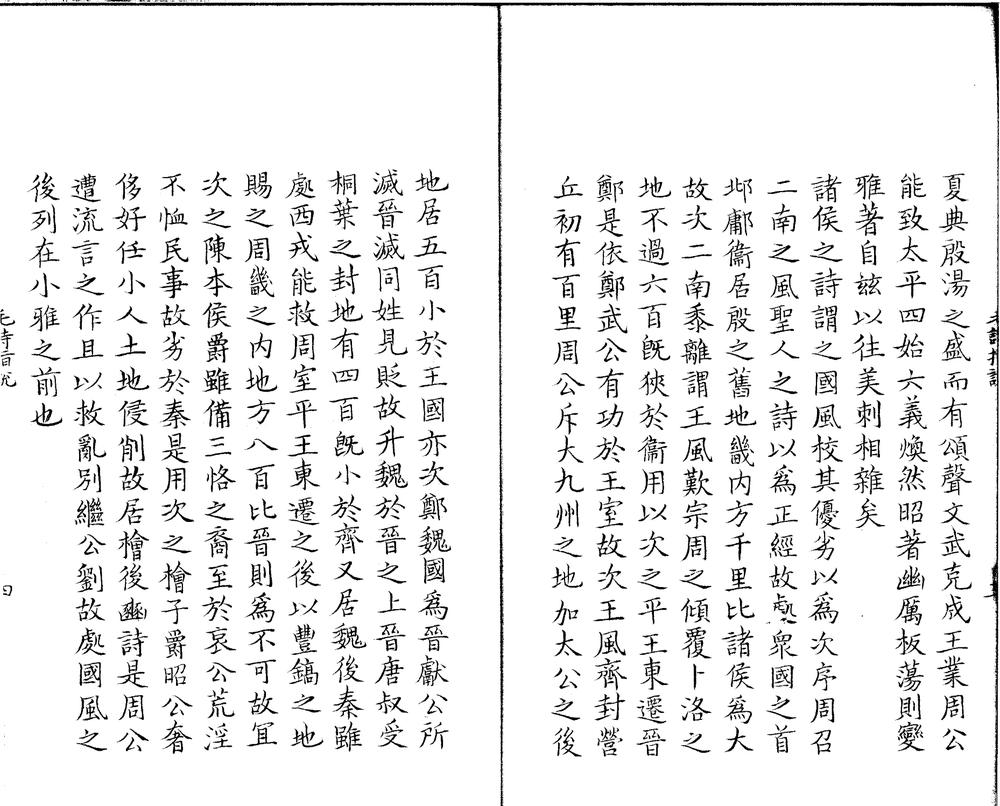 夏典殷湯之盛而有頌聲文武克成王業周公
能致太平四始六義煥然昭著幽厲板蕩則變
雅著自玆以往美刺相雜矣
諸侯之詩謂之國風校其優劣以為次序周召
二南之風聖人之詩以為正經故處衆國之首
邶鄘衞居殷之舊地畿内方千里比諸侯為大
故次二南黍離謂王風歎宗周之傾覆卜洛之
地不過六百既狹於衞用以次之平王東遷晉
鄭是依鄭武公有功於王室故次王風齊封營
丘初有百里周公斥大九州之地加太公之後
地居五百小於王國亦次鄭魏國為晉獻公所
滅晉滅同姓見貶故升魏於晉之上晉唐叔受
桐葉之封地有四百既小於齊又居魏後秦雖
處西戎能救周室平王東遷之後以豐鎬之地
賜之周畿之内地方八百比晉則為不可故宜
次之陳本侯爵雖備三恪之裔至於哀公荒淫
不恤民事故劣於秦是用次之檜子爵昭公奢
侈好任小人土地侵削故居檜後豳詩是周公
遭流言之作且以救亂别繼公劉故處國風之
後列在小雅之前也